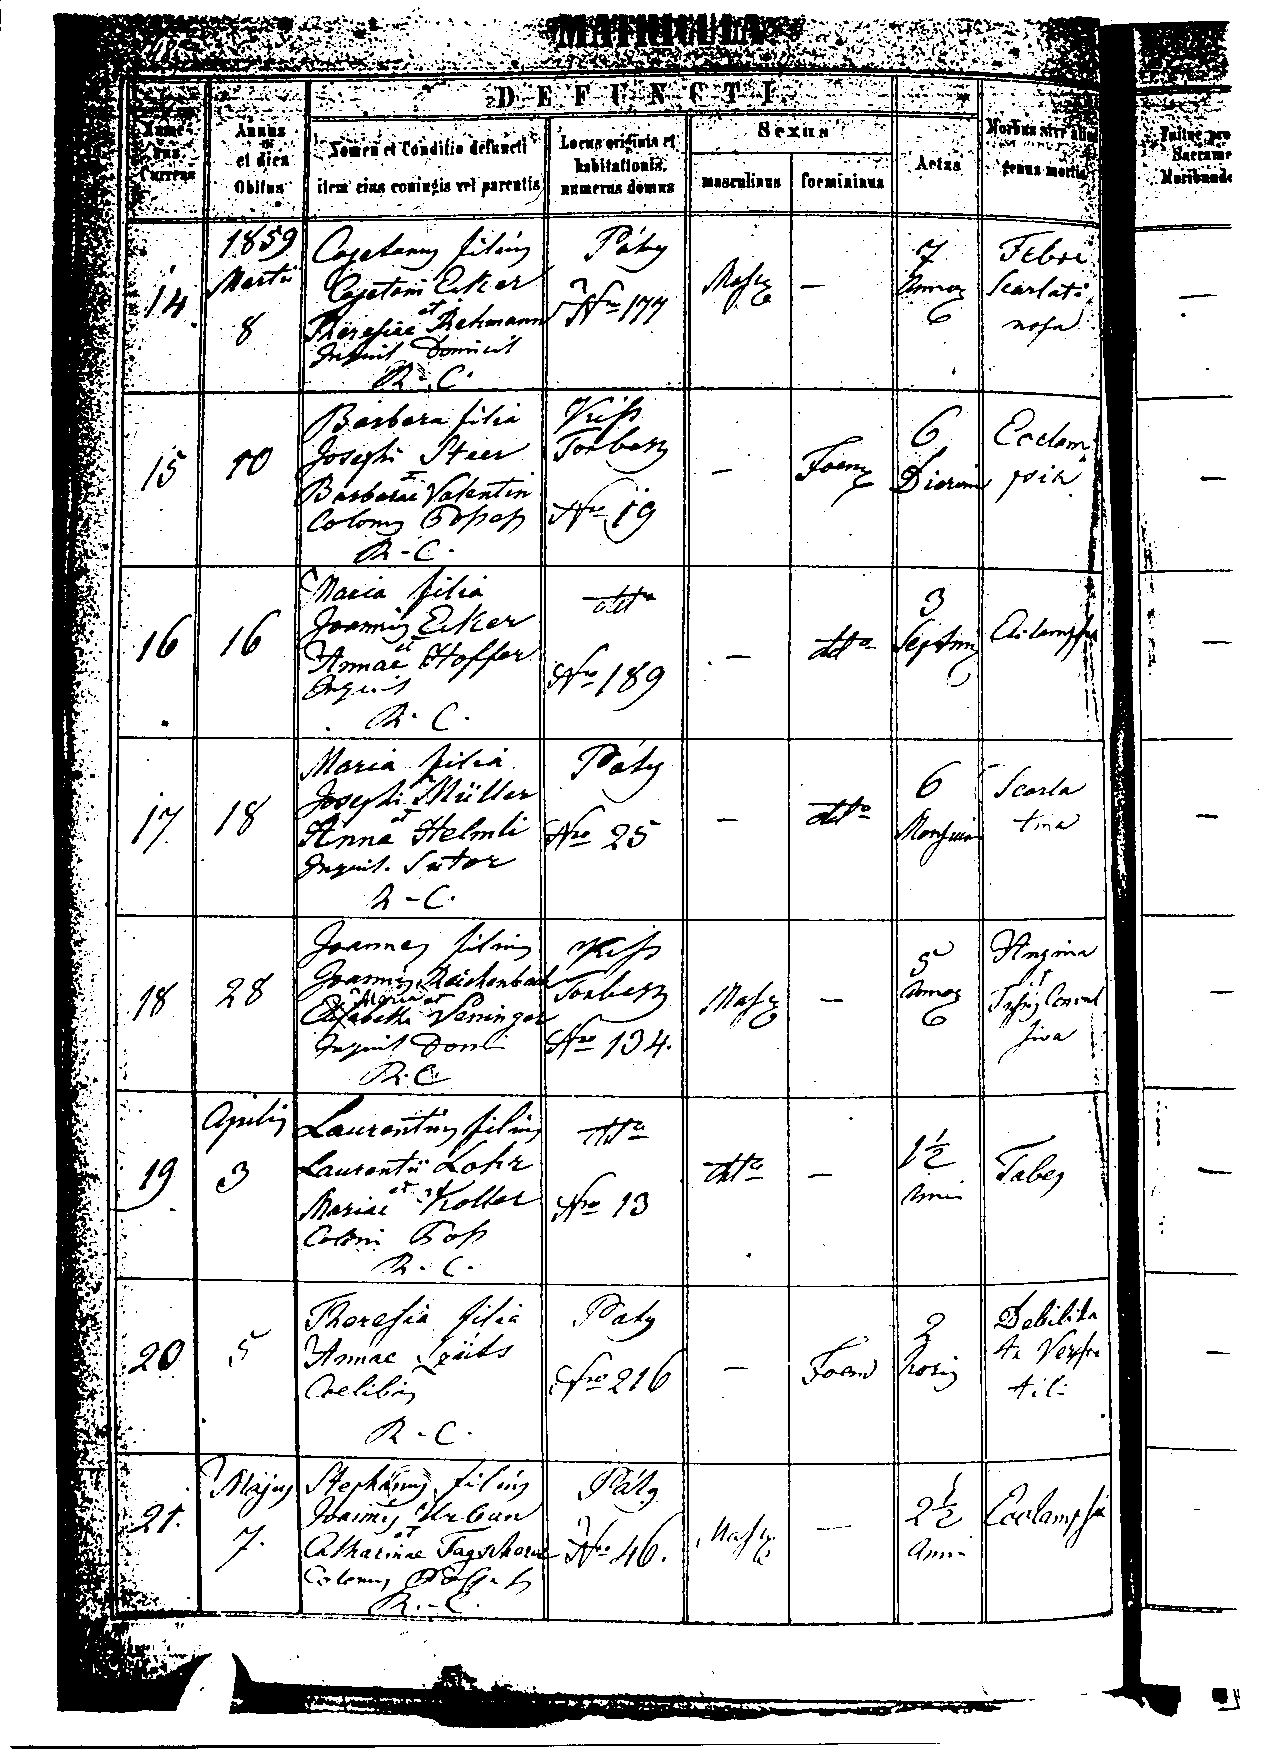 MATRICULA
DEFUNCTI
Nume-
rus
Currens
Annus
et dies
Obitus
Nomen et Conditio defuncti
item eius coniugis vel parentis
Locus originis et
habitationis,
numerus domus
Sexus
masculinus
foemininus
Aetas
Morbus sive aliud
genus mortis
14
1859
Martii
8
Cajetanus filius
Cajetani Eiker
et
Theresiae Rehmann
Inquil Domicil
R. C.
Páty
Nro 177
Masc
—
7
Annor
Febre
Scarlati
nosa
—
15
10
Barbara filia
Josephi Steer
et
Barbarae Valentin
Colony
R - C.
Kiss
Torbasz
Nro 19
—
Foem
6
Dierum
Ecclam
psia
—
16
16
Maria filia
Joannis Eiker
et
Annae Hoffer
Inquil
R. C.
dtto
Nro 189
—
dtto
3
Septim
Eclampsia
—
17
18
Maria filia
Josephi Müller
et
Anna Helmli
Inquil. Sutor
R - C.
Páty
Nro 25
—
dtto
6
Mensium
Scarla
tina
—
18
28
Joannes filius
Joannis Reichenbach
Maria et
Elisabetha Veninger
Inquil Domi
R. C.
Kiss
Torbasz
Nro 134.
Masc
—
5
Annor
Angina
et
Tussis Convul
siva
—
19
Aprilis
3
Laurentius filius
Laurentii Lohr
et
Mariae Koller
Coloni
R. C.
dtto
Nro 13
dtto
—
1½
Anni
Tabes
—
20
5
Theresia filia
Annae
Coelibis
R - C.
Páty
Nro 216
—
Foem
2
horis
Debilita
te
—
21.
Majus
7.
Stephanus filius
Joannis Urban
et
Catharinae
Colonus
R. - C.
Páty
Nro 46.
Masc
—
2½
Anni
Ecclampsia